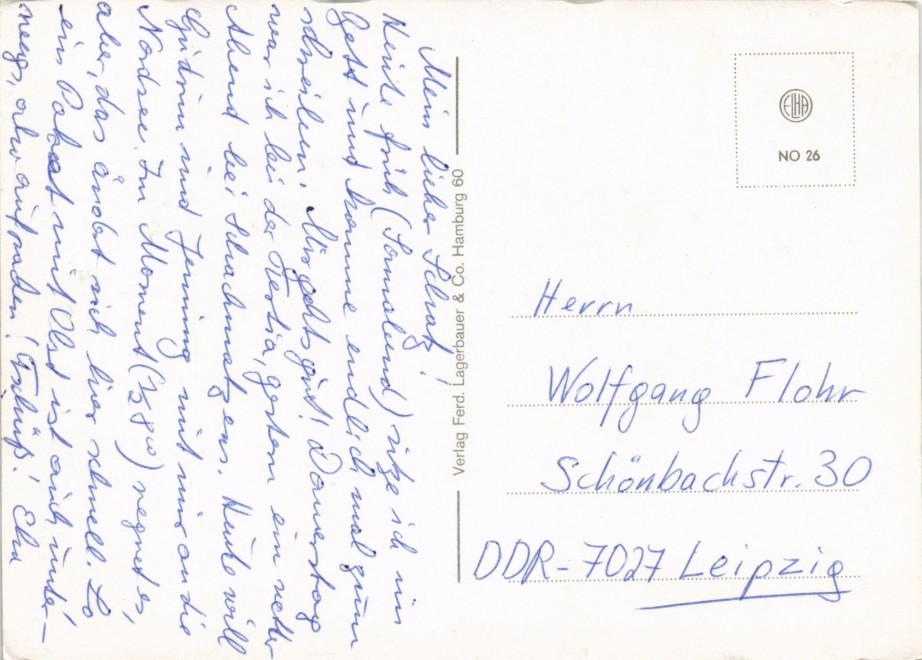 Mein lieber Schatz!
Heute früh (Sonnabend) sitze ich im
Bett und komme endlich mal zum
schreiben. Mir gehts gut! Donnerstag
war ich bei der Hertia, gestern ein netter
Abend bei Schachmatzens. Heute will
Gudrun und Jenning mit mir an die
Nordsee. Im Moment (½ 8 w) regnet es,
aber, das ändert sich hier schnell. So
ein Paket mit Obst ist auch unter-
wegs, also aufpassen! Tschüß!
Verlag Ferd. Lagerbauer & Co. Hamburg 60
ELHA
NO 26
Herrn
Wolfgang Flohr
Schönbachstr. 30
DDR-7027 Leipzig